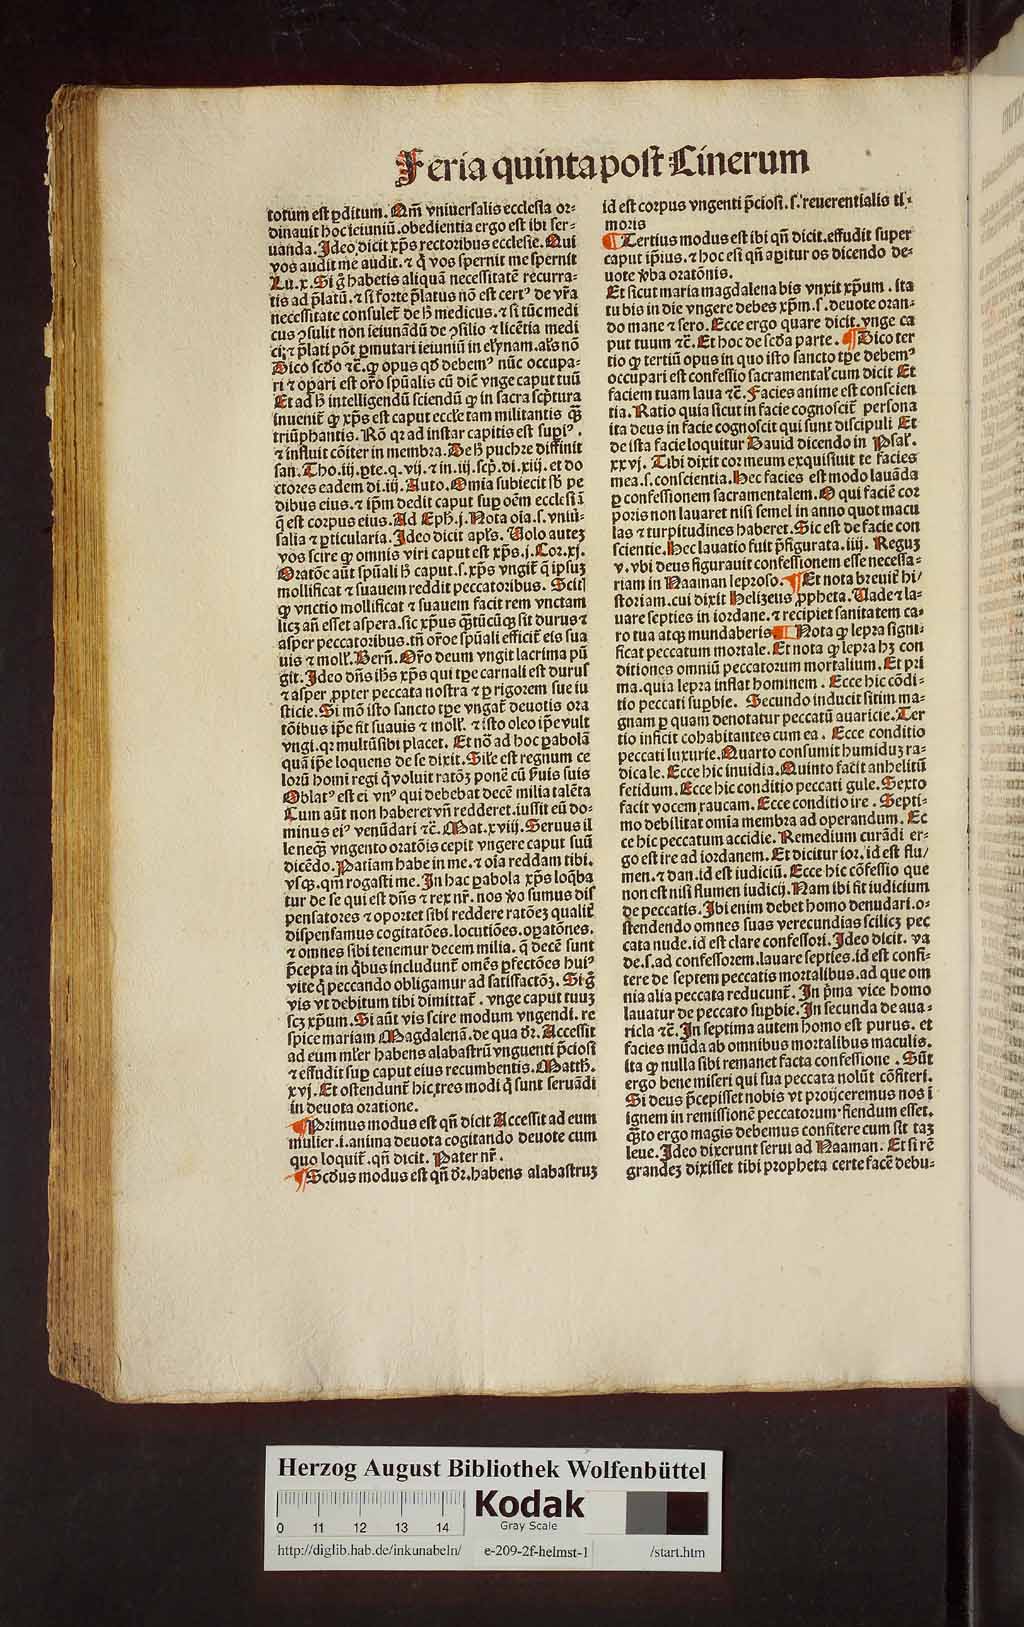 Feria quinta post Cinerum
totum est ꝑditum. Qm̄ vniuersalis ecclesia or⸗
dinauit hoc ieiuniū. obedientia ergo est ibi ser⸗
uanda. Ideo dicit xp̄s rectoribus ecclesie. Qui
vos audit me audit. ⁊ q̇ vos spernit me spernit
Lu. x. Si g̊ habetis aliquā necessitatē recurra⸗
tis ad p̄latū. ⁊ si forte p̄latus nō est certꝰ de vr̄a
necessitate consulet᷑ de h̄ medicus. ⁊ si tūc medi
cus ꝯsulit non ieiunādū de ꝯsilio ⁊ licētia medi
ci; ⁊ p̄lati pōt ꝑmutari ieiuniū in elynam. al's nō
Dico scd̊o ⁊c̄. ꝙ opus qd̊ debemꝰ nūc occupa⸗
ri ⁊ oꝑari est or̄o spūalis cū diē vnge caput tuū
Et ad h̄ intelligendū sciendū ꝙ in sacra scp̄tura
inuenit᷑ ꝙ xp̄s est caput eccl'e tam militantis q̄ꝫ
triūphantis. Rō qꝛ ad instar capitis est supiꝰ.
⁊ influit cōiter in membra. De h̄ pulchre diffinit
san. Tho. iij. pte. q. vij. ⁊ in. iij. scp̄. di. xiij. et do
ctores eadem di. iij. Auto. Omia subiecit sb̄ pe
dibus eius. ⁊ ip̄m dedit caput suꝑ oēm ecclesiā
q̄ est corpus eius. Ad Eph. j. Nota oīa. s. vniū⸗
salia ⁊ ꝑticularia. Ideo dicit apl's. Volo autez
vos scire ꝙ omnis viri caput est xp̄s. j. Cor. xj.
Oratōe aūt spūali h̄ caput. s. xp̄s vngit᷑ q̄ ipsuꝫ
mollificat ⁊ suauem reddit peccatoribus. Scit᷑
ꝙ vnctio mollificat ⁊ suauem facit rem vnctam
licꝫ an̄ esset aspera. sic xp̄s q̄ꝫtūcūqꝫ sit durus ⁊
asper peccatoribus. tn̄ or̄oe spūali efficit᷑ eis sua
uis ⁊ moll'. Bern̄. Or̄o deum vngit lacrima pū
git. Ideo dn̄s ih̄s xp̄s qui tꝑe carnali est durus
⁊ asper ꝓpter peccata nostra ⁊ ꝑ rigorem sue iu
sticie. Si mō isto sancto tꝑe vngat᷑ deuotis ora
tōibus ip̄e fit suauis ⁊ moll'. ⁊ isto oleo ip̄e vult
vngi. qꝛ multū sibi placet. Et nō ad hoc ꝑabolā
quā ip̄e loquens de se dixit. Sil'e est regnum ce
lorū homi regi q̇ voluit ratōꝫ ponē cū ẜuis suis
Oblatꝰ est ei vnꝰ qui debebat decē milia talēta
Cum aūt non haberet vn̄ redderet. iussit eū do⸗
minus eiꝰ venūdari ⁊c̄. Mat. xviij. Seruus il
le neqꝫ vngento oratōis cepit vngere caput suū
dicēdo. Patiam habe in me. ⁊ oīa reddam tibi.
vsqꝫ. qm̄ rogasti me. In hac ꝑabola xp̄s loq̄ba
tur de se qui est dn̄s ⁊ rex nr̄. nos v̊o sumus dis
pensatores ⁊ oportet sibi reddere ratōeꝫ qualit᷑
dispensamus cogitatōes. locutiōes. oꝑatōnes.
⁊ omnes sibi tenemur decem milia. q̄ decē sunt
p̄cepta in q̇bus includunt᷑ omēs ꝑfectōes huiꝰ
vite q̇ peccando obligamur ad satisfactōꝫ. Si g̊
vis vt debitum tibi dimittat᷑. vnge caput tuuꝫ
scꝫ xp̄um. Si aūt vis scire modum vngendi. re
spice mariam Magdalenā. de qua dr̄. Accessit
ad eum ml'er habens alabastrū vnguenti p̄ciosi
⁊ effudit suꝑ caput eius recumbentis. Matth.
xvj. Et ostendunt᷑ hic tres modi q̇ sunt seruādi
in deuota oratione.
¶ Primus modus est qn̄ dicit Accessit ad eum
mulier. i. anima deuota cogitando deuote cum
quo loquit᷑. qn̄ dicit. Pater nr̄.
¶ Scd̊us modus est qn̄ dr̄. habens alabastruꝫ
id est corpus vngenti p̄ciosi. s. reuerentialis ti⸗
moris
¶ Tertius modus est ibi qn̄ dicit. effudit super
caput ip̄ius. ⁊ hoc est qn̄ aꝑitur os dicendo de⸗
uote v̊ba oratōnis.
Et sicut maria magdalena bis vnxit xp̄um. ita
tu bis in die vngere debes xp̄m. s. deuote oran⸗
do mane ⁊ sero. Ecce ergo quare dicit. vnge ca
put tuum ⁊c̄. Et hoc de scd̊a parte. ¶ Dico ter
tio ꝙ tertiū opus in quo isto sancto tꝑe debemꝰ
occupari est confessio sacramental' cum dicit Et
faciem tuam laua ⁊c̄. Facies anime est conscien
tia. Ratio quia sicut in facie cognoscit᷑ persona
ita deus in facie cognoscit qui sunt discipuli Et
de ista facie loquitur Dauid dicendo in Psal'.
xxvj. Tibi dixit cor meum exquisiuit te facies
mea. s. conscientia. Hec facies est modo lauāda
ꝑ confessionem sacramentalem. O qui faciē cor
poris non lauaret nisi semel in anno quot macu
las ⁊ turpitudines haberet. Sic est de facie con
scientie. Hec lauatio fuit p̄figurata. iiij. Reguꝫ
v. vbi deus figurauit confessionem esse necessa⸗
riam in Naaman leproso. ¶ Et nota breuit᷑ hi/
storiam. cui dixit Helizeus ꝓpheta. Vade ⁊ la⸗
uare septies in iordane. ⁊ recipiet sanitatem ca⸗
ro tua atqꝫ mundaberis ¶ Nota ꝙ lepra signi⸗
ficat peccatum mortale. Et nota ꝙ lepra hꝫ con
ditiones omniū peccatorum mortalium. Et pri
ma. quia lepra inflat hominem. Ecce hic cōdi⸗
tio peccati suꝑbie. Secundo inducit sitim ma⸗
gnam ꝑ quam denotatur peccatū auaricie. Ter
tio inficit cohabitantes cum ea. Ecce conditio
peccati luxurie. Quarto consumit humiduꝫ ra⸗
dicale. Ecce hic inuidia. Quinto facit anhelitū
fetidum. Ecce hic conditio peccati gule. Sexto
facit vocem raucam. Ecce conditio ire. Septi⸗
mo debilitat omia membra ad operandum. Ec
ce hic peccatum accidie. Remedium curādi er⸗
go est ire ad iordanem. Et dicitur ior. id est flu/
men. ⁊ dan. id est iudiciū. Ecce hic cōfessio que
non est nisi flumen iudicij. Nam ibi fit iudicium
de peccatis. Ibi enim debet homo denudari. o⸗
stendendo omnes suas verecundias scilicꝫ pec
cata nude. id est clare confessori. Ideo dicit. va
de. s. ad confessorem. lauare septies. id est confi⸗
tere de septem peccatis mortalibus. ad que om
nia alia peccata reducunt᷑. In p̄ma vice homo
lauatur de peccato suꝑbie. In secunda de aua⸗
ricia ⁊c̄. In septima autem homo est purus. et
facies mūda ab omnibus mortalibus maculis.
ita ꝙ nulla sibi remanet facta confessione. Sūt
ergo bene miseri qui sua peccata nolūt cōfiteri.
Si deus p̄cepisset nobis vt proijceremus nos ī
ignem in remissionē peccatorum. fiendum esset.
q̄ꝫto ergo magis debemus confitere cum sit taꝫ
leue. Ideo dixerunt serui ad Naaman. Et si rē
grandeꝫ dixisset tibi propheta certe facē debu⸗
Herzog August Bibliothek Wolfenbüttel
0 11 12 13 14
Kodak
Gray Scale
http://diglib.hab.de/inkunabeln/ e-209-2f-helmst-1 /start.htm